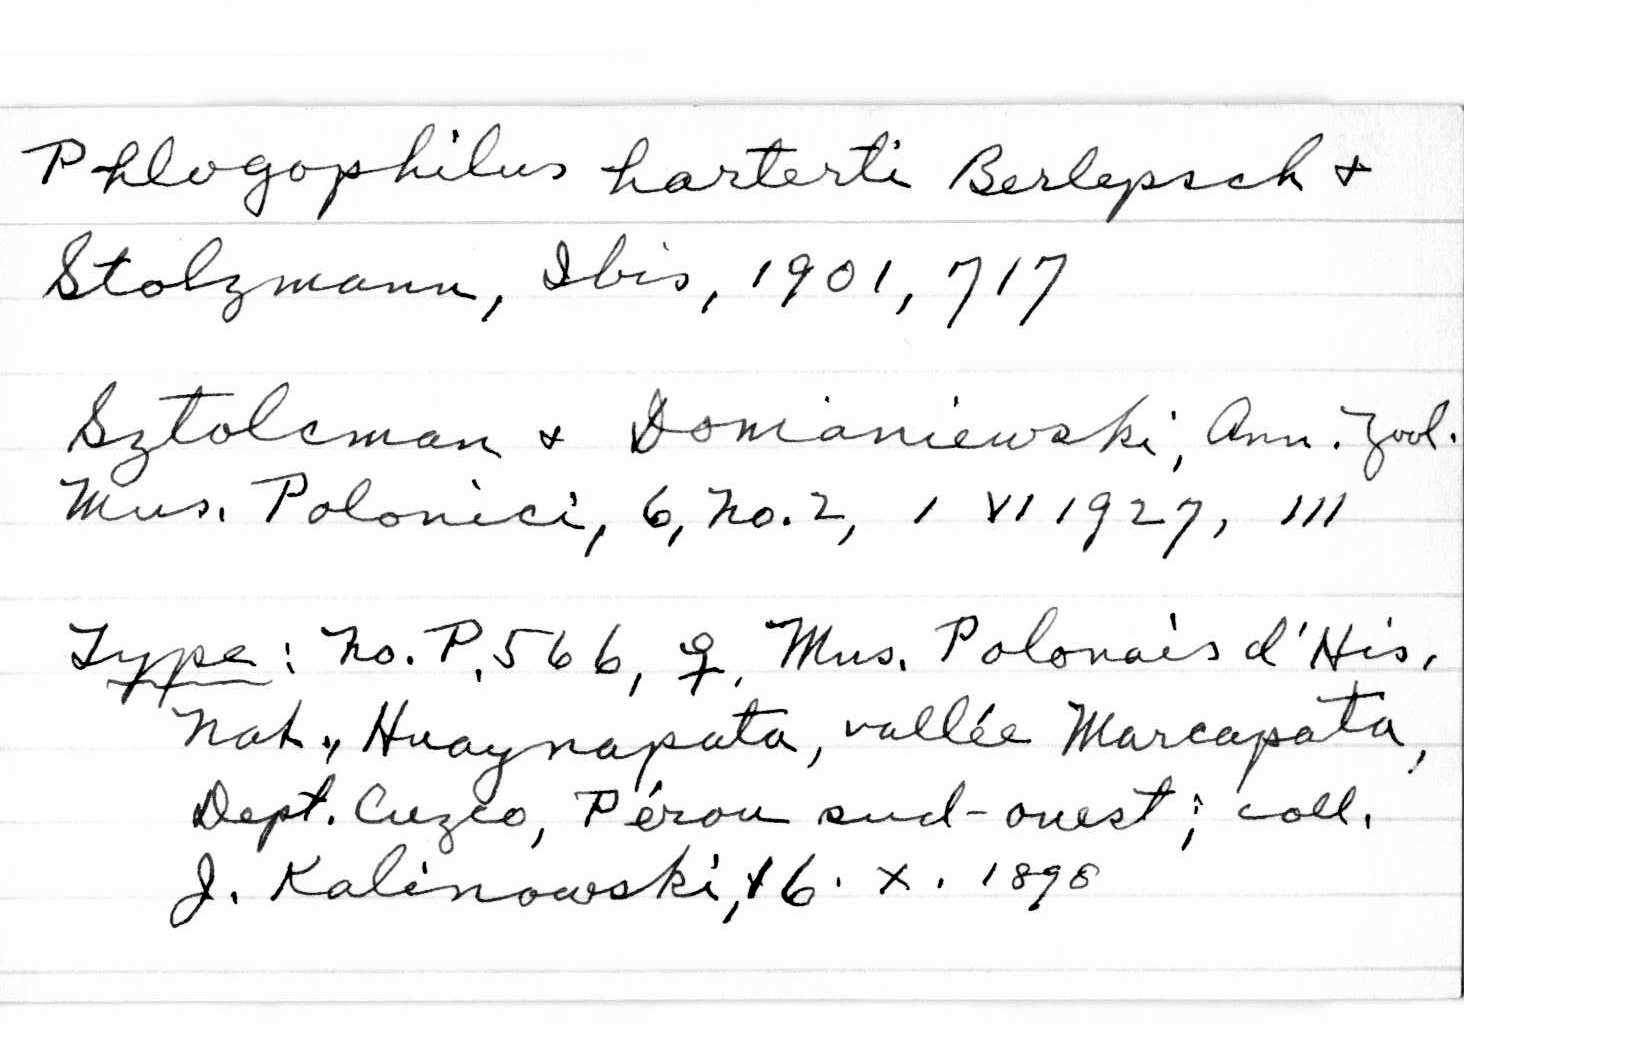 Phlogophilus harterti Berlepsch &
Stolzmann, Ibis, 1901, 717
Sztolcman & Domaniewski, Ann. Zool.
Mus. Polonici, 6, No. 2, 1 VI 1927, 111
Type: No. P. 566, ♀, Mus. Polonais d'His.
Nat., Huaynapata, vallée Marcapata,
Dept. Cuzco, Pérou sud-ouest; coll.
J. Kalinowski, 16. X. 1898